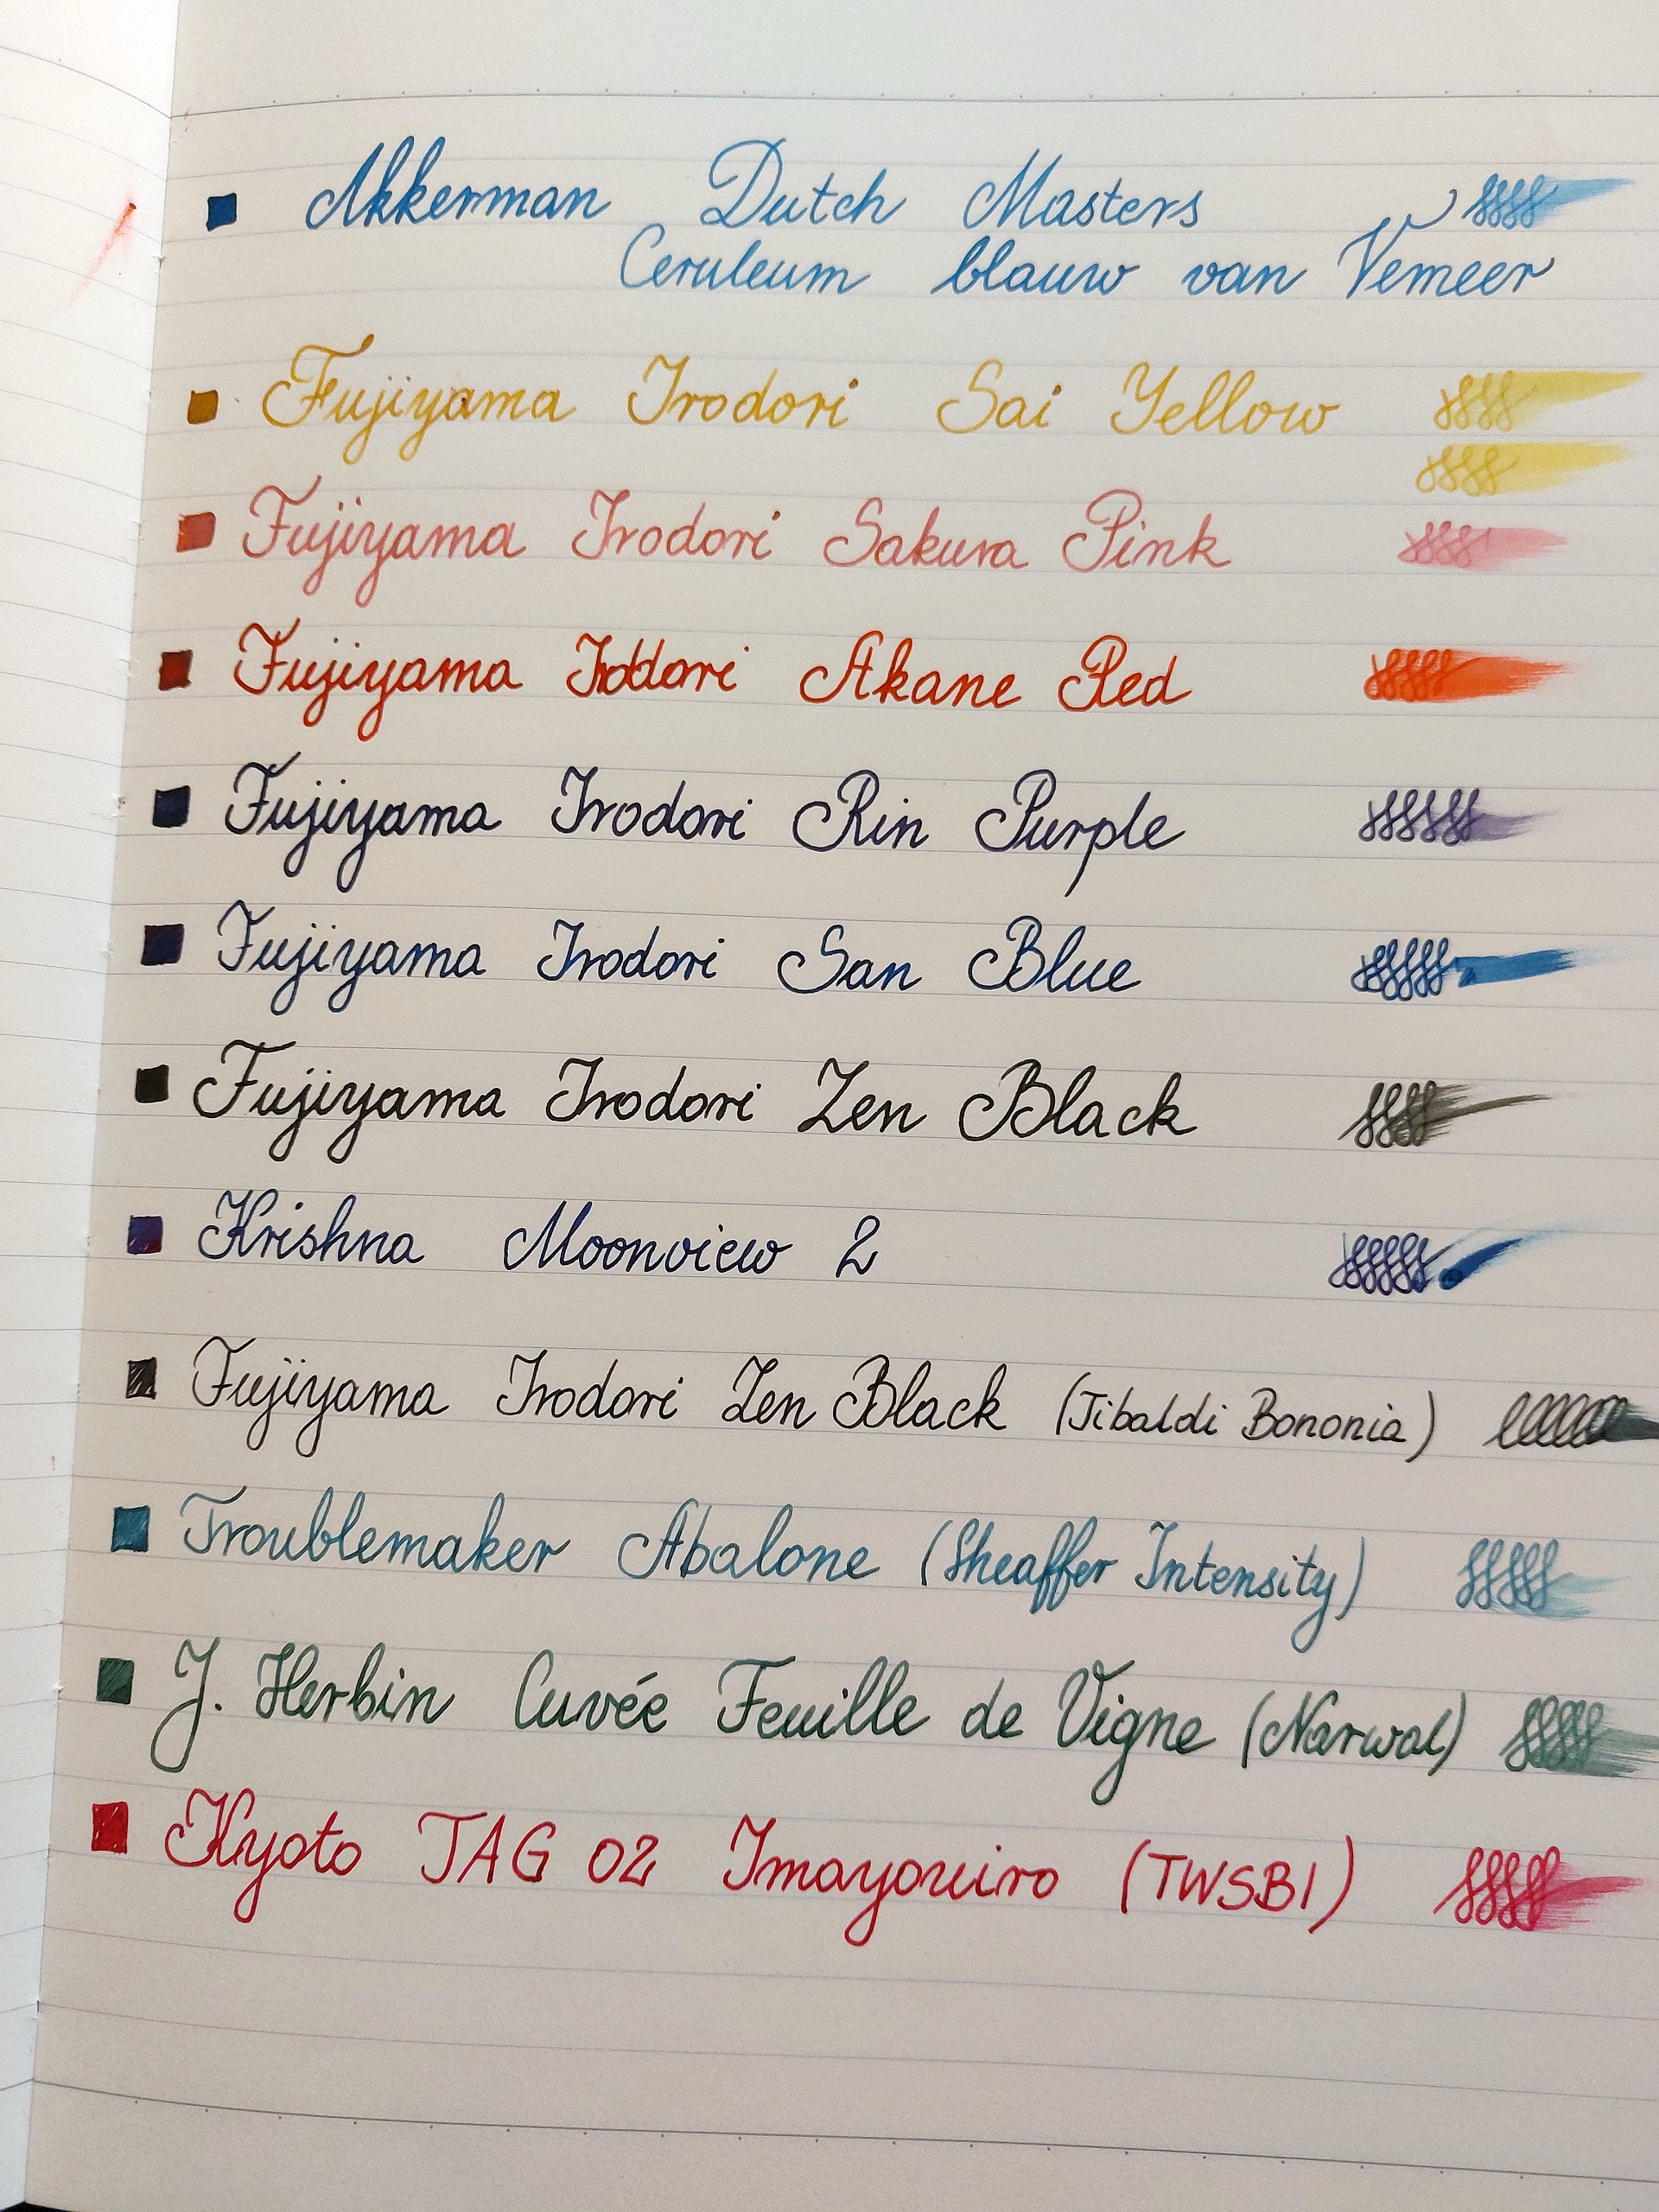 Akkerman Dutch Masters
Ceruleum blauw van Vemeer
Fujiyama Irodori Sai Yellow
Fujiyama Irodori Sakura Pink
Fujiyama Iroddori Akane Red
Fujiyama Irodori Rin Purple
Fujiyama Irodori San Blue
Fujiyama Irodori Zen Black
Krishna Moonview 2
Fujiyama Irodori Zen Black (Tibaldi Bononia)
Troublemaker Abalone (Sheaffer Intensity)
J. Herbin Cuvée Feuille de Vigne (Narwal)
Kyoto TAG 02 Imayouiro (TWSBI)